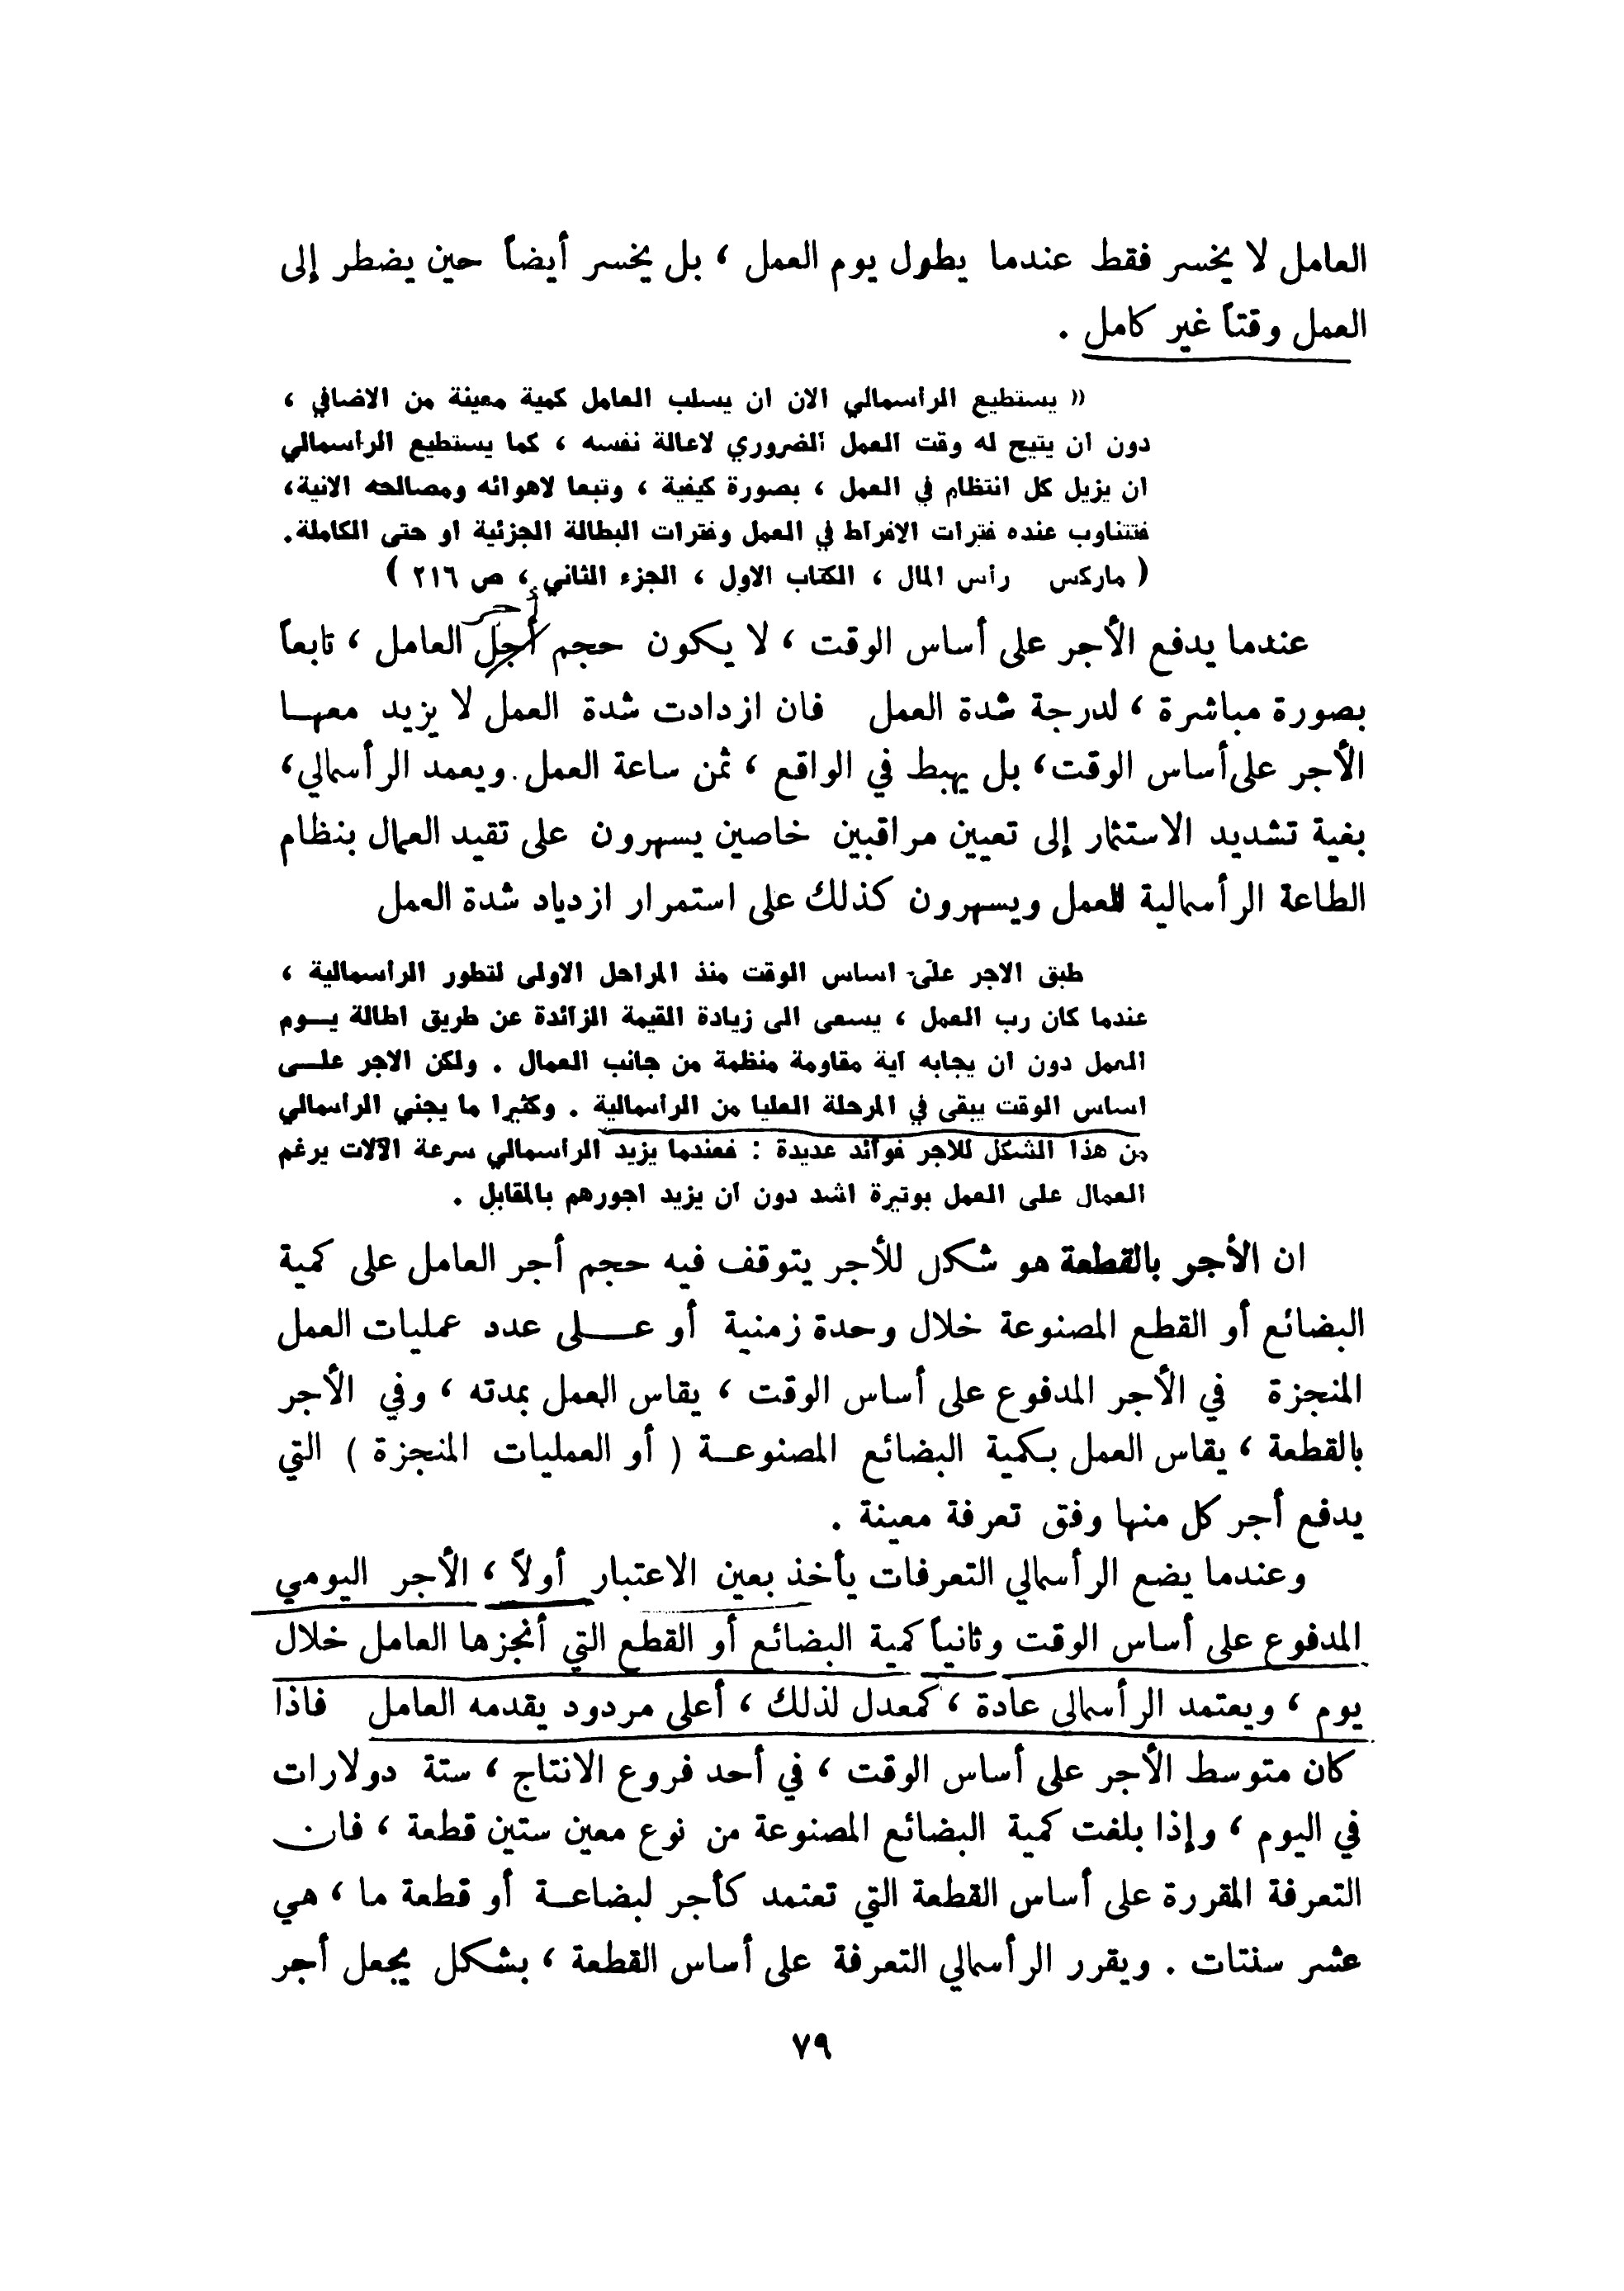 العامل لا يخسر فقط عندما يطول يوم العمل ، بل يخسر أيضاً حين يضطر إلى
العمل وقتاً غير كامل .
« يستطيع الرأسمالي الان ان يسلب العامل كمية معينة من الاضافي ،
دون ان يتيح له وقت العمل الضروري لاعالة نفسه ، كما يستطيع الراسمالي
ان يزيل كل انتظام في العمل ، بصورة كيفية ، وتبعا لاهوائه ومصالحه الانية،
فتتناوب عنده فترات الافراط في العمل وفترات البطالة الجزئية او حتى الكاملة.
( ماركس رأس المال ، الكتاب الاول ، الجزء الثاني ، ص ٢١٦ )
عندما يدفع الأجر على أساس الوقت ، لا يكون حجم أجل العامل ، تابعاً
بصورة مباشرة ، لدرجة شدة العمل فان ازدادت شدة العمل لا يزيد معهـا
الأجر على أساس الوقت، بل يهبط في الواقع ، ثمن ساعة العمل . ويعمد الرأسمالي،
بغية تشديد الاستثمار إلى تعيين مراقبين خاصين يسهرون على تقيد العمال بنظام
الطاعة الرأسمالية للعمل ويسهرون كذلك على استمرار ازدياد شدة العمل
طبق الاجر على اساس الوقت منذ المراحل الاولى لتطور الراسمالية ،
عندما كان رب العمل ، يسعى الى زيادة القيمة الزائدة عن طريق اطالة يــوم
العمل دون ان يجابه اية مقاومة منظمة من جانب العمال . ولكن الاجر علــى
اساس الوقت يبقى في المرحلة العليا من الراسمالية . وكثيرا ما يجني الراسمالي
من هذا الشكل للاجر فوائد عديدة : فعندما يزيد الراسمالي سرعة الآلات يرغم
العمال على العمل بوتيرة اشد دون ان يزيد اجورهم بالمقابل .
ان الأجر بالقطعة هو شكل للأجر يتوقف فيه حجم أجر العامل على كمية
البضائع أو القطع المصنوعة خلال وحدة زمنية أو عـــلى عدد عمليات العمل
المنجزة في الأجر المدفوع على أساس الوقت ، يقاس العمل بمدته ، وفي الأجر
بالقطعة ، يقاس العمل بـكمية البضائع المصنوعـة ( أو العمليات المنجزة ) التي
يدفع أجر كل منها وفق تعرفة معينة .
وعندما يضع الرأسمالي التعرفات يأخذ بعين الاعتبار أولاً ، الأجر اليومي
المدفوع على أساس الوقت وثانياً كمية البضائع أو القطع التي أنجزها العامل خلال
يوم ، ويعتمد الرأسمالي عادة ، كمعدل لذلك ، أعلى مردود يقدمه العامل فاذا
كان متوسط الأجر على أساس الوقت ، في أحد فروع الانتاج ، ستة دولارات
في اليوم ، وإذا بلغت كمية البضائع المصنوعة من نوع معين ستين قطعة ، فان
التعرفة المقررة على أساس القطعة التي تعتمد كأجر لبضاعـة أو قطعة ما ، هي
عشر سنتات . ويقرر الرأسمالي التعرفة على أساس القطعة ، بشكل يجعل أجر
٧٩